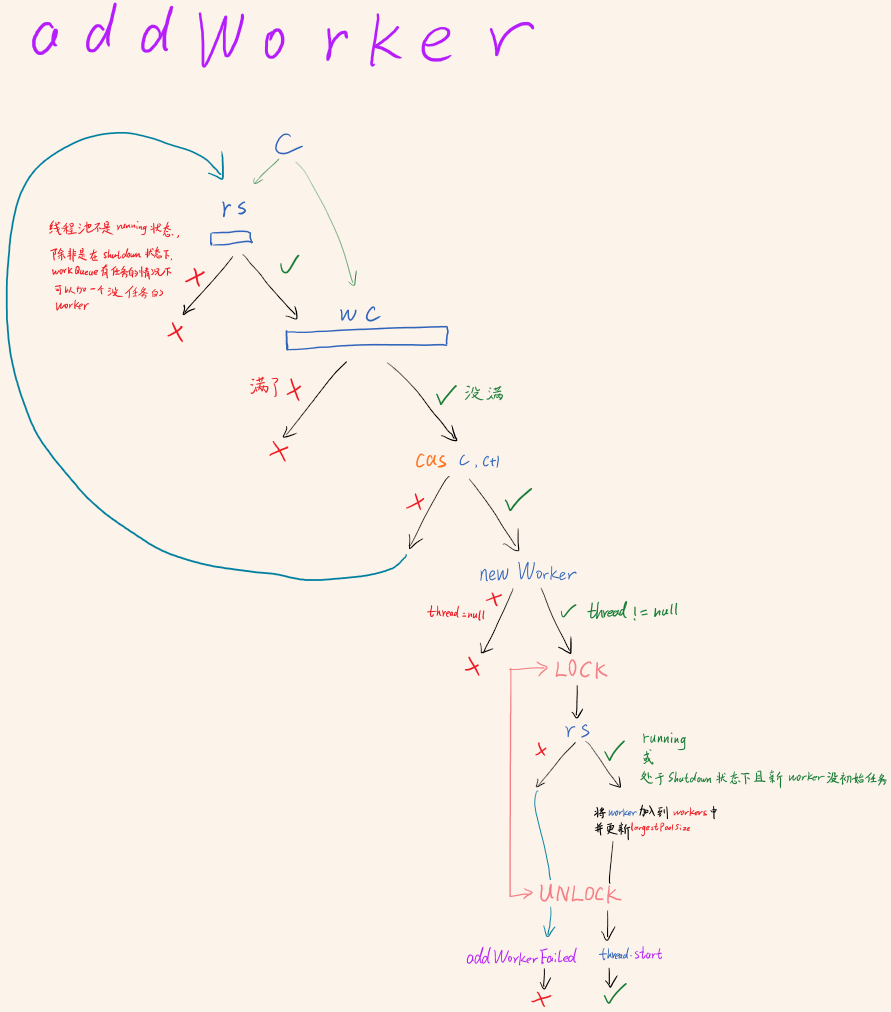 addWorker
c
rs
线程池不是running状态,
除非是在shutdown状态下,
workQueue有任务的情况下
可以加一个没任务的
worker
wc
满了
没满
cas c, c+1
new Worker
thread=null
thread != null
LOCK
rs
running
或
处于shutdown状态下且新worker没初始任务
将worker加入到workers中
并更新largestPoolSize
UNLOCK
addWorkerFailed
thread.start